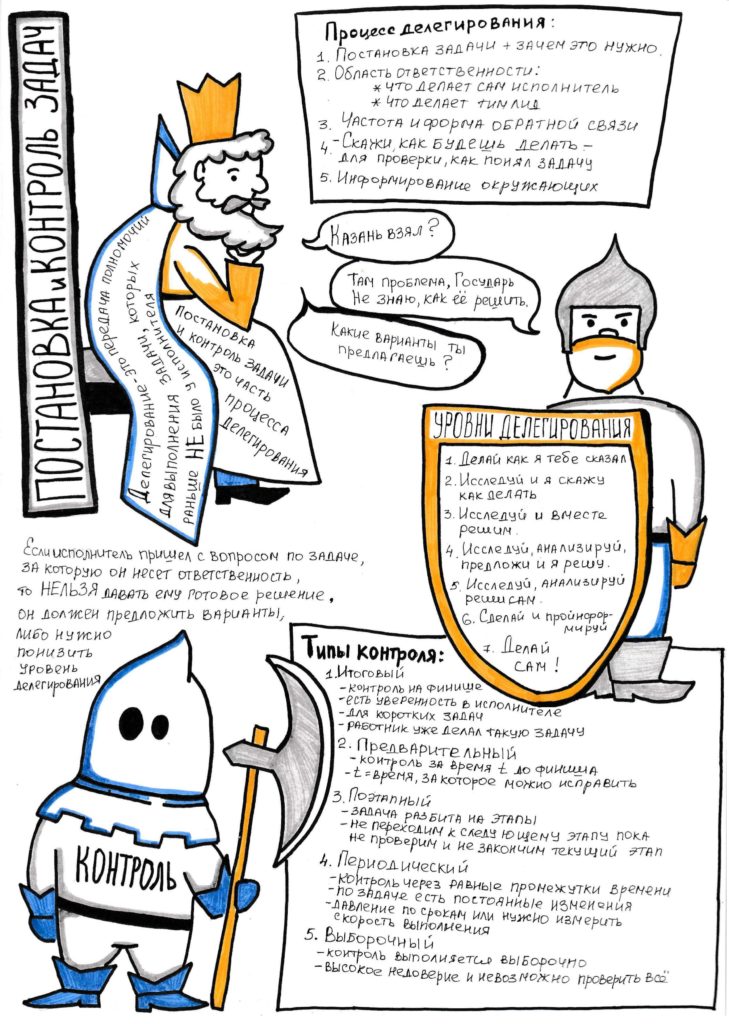 ПОСТАНОВКА и КОНТРОЛЬ ЗАДАЧ
Процесс делегирования:
1. Постановка задачи + зачем это нужно.
2. Область ответственности:
* что делает сам исполнитель
* что делает тимлид
3. Частота и форма обратной связи
4. – Скажи, как будешь делать –
для проверки, как понял задачу
5. Информирование окружающих
Казань взял?
Там проблема, Государь
Не знаю, как её решить.
Какие варианты ты
предлагаешь?
Делегирование - это передача полномочий
для выполнения задачи, которых
раньше НЕ было у исполнителя
Постановка
и контроль задачи
это часть
процесса
делегирования
УРОВНИ ДЕЛЕГИРОВАНИЯ
1. Делай как я тебе сказал
2. Исследуй и я скажу
как делать
3. Исследуй и вместе
решим.
4. Исследуй, анализируй,
предложи и я решу.
5. Исследуй, анализируй
реши сам.
6. Сделай и проинфор-
мируй
7. Делай
сам!
Если исполнитель пришел с вопросом по задаче,
за которую он несет ответственность,
то НЕЛЬЗЯ давать ему готовое решение.
он должен предложить варианты,
либо нужно
понизить
уровень
делегирования
КОНТРОЛЬ
Типы контроля:
1. Итоговый
- контроль на финише
- есть уверенность в исполнителе
- для коротких задач
- работник уже делал такую задачу
2. Предварительный
- контроль за время t до финиша
- t = время, за которое можно исправить
3. Поэтапный
- задача разбита на этапы
- не переходим к следующему этапу пока
не проверим и не закончим текущий этап
4. Периодический
- контроль через равные промежутки времени
- по задаче есть постоянные изменения
- давление по срокам или нужно измерить
скорость выполнения
5. Выборочный
- контроль выполняется выборочно
- высокое недоверие и невозможно проверить всё